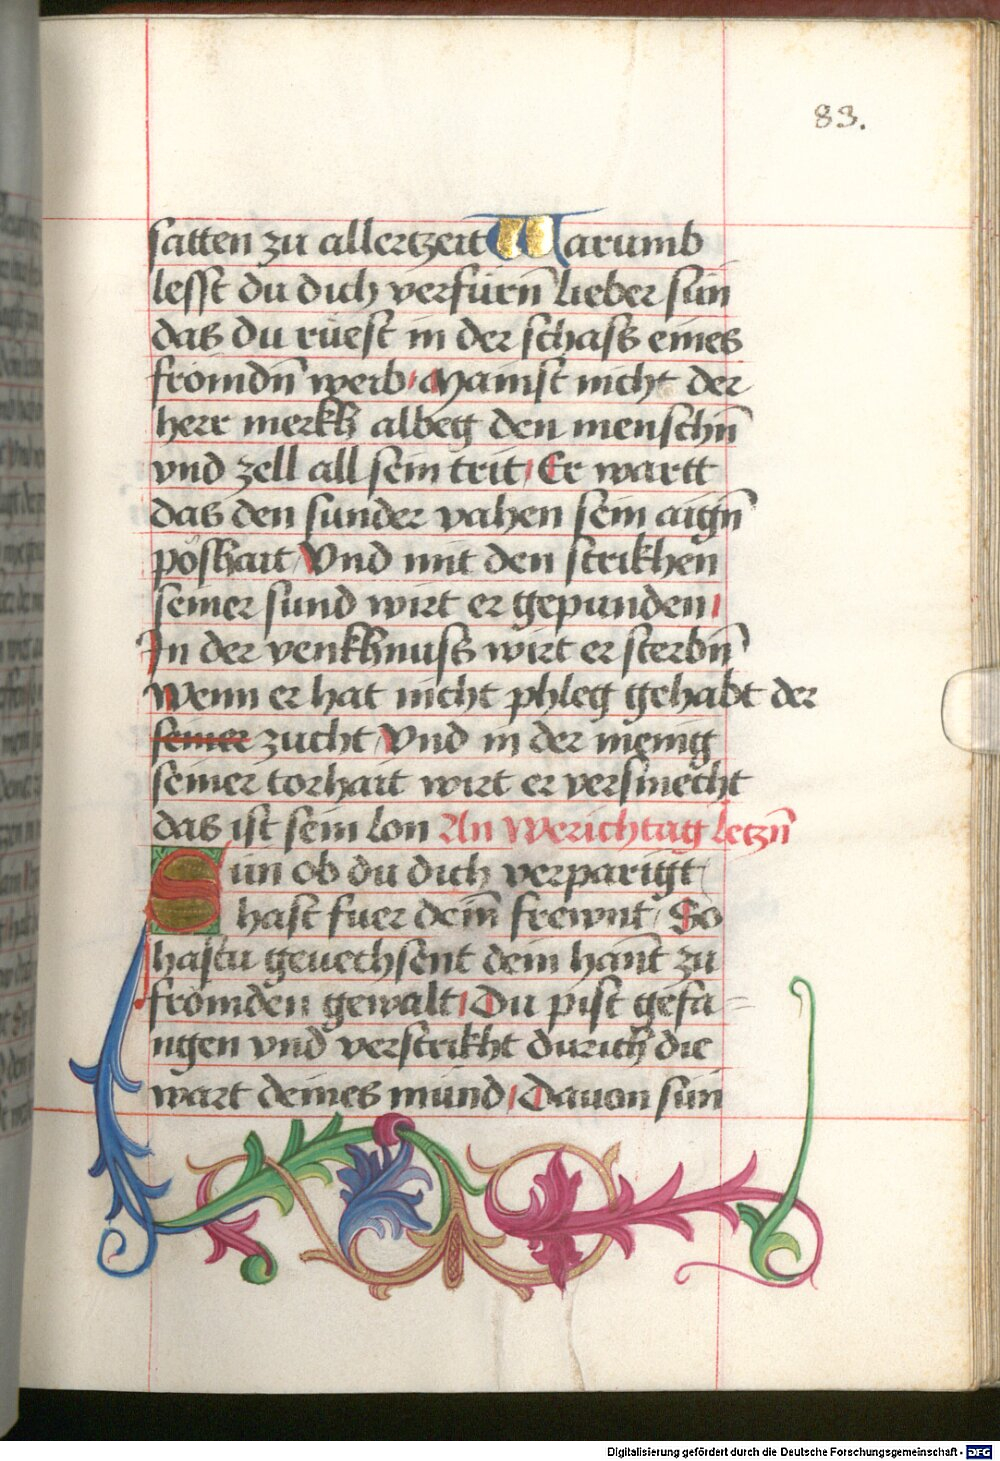 83.
satten zu allertzeit Warumb
lesst du dich verfürn̄ lieber sun
das du rüest in der schass eines
fromdn̄ weib Mainst nicht der
herr merkh albeg den menschn̄
vnd zell all sein trit Er wartt
das den sunder vahen sein aign̄
poshait Vnd mit den strikhen
seiner sund wirt er gepunden
In der venkhnuss wirt er sterbn̄
Wenn er hat nicht phleg gehabt der
seiner zucht Vnd in der menig
seiner torhait wirt er versmecht
das ist sein lon An Werichtag letzn̄
Sun ob du dich verparigt
hast fuer dein̄ frewnt So
hastu geuechsent dein han̄t zu
fromden gewalt Du pist gefa=
ngen vnd verstrikht durich die
wart deines mund Dauon sun
Digitalisierung gefördert durch die Deutsche Forschungsgemeinschaft - DFG